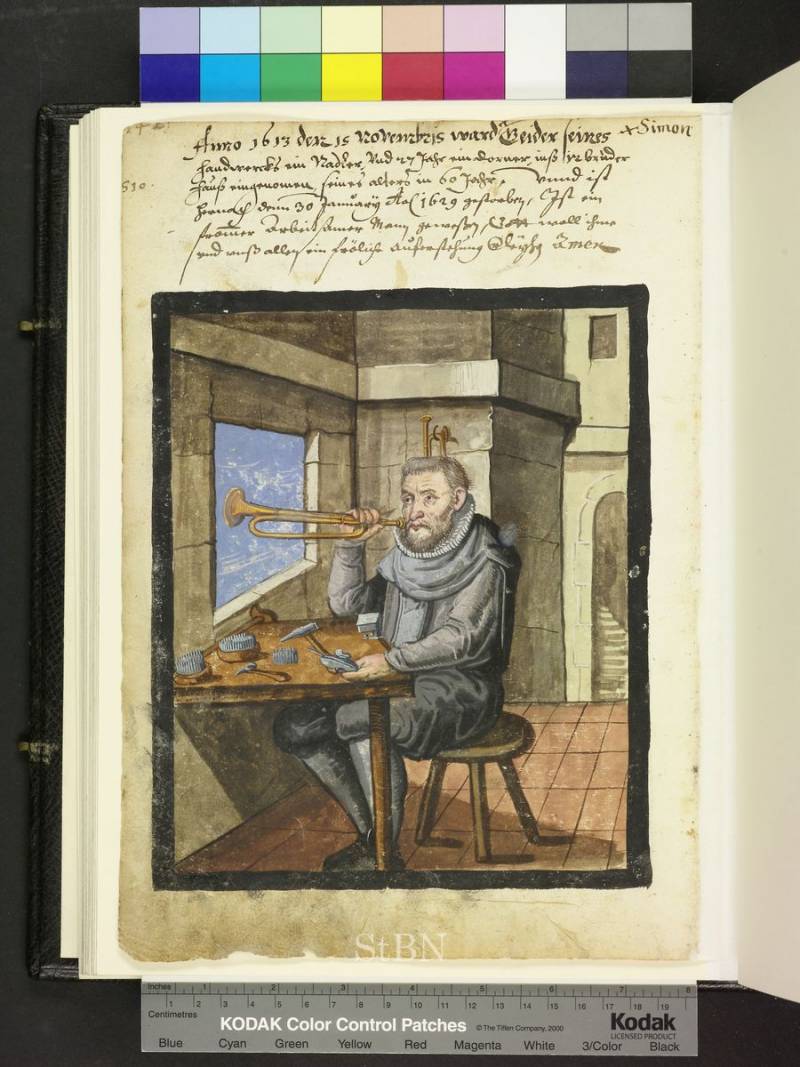 Anno 1613 den 15 Novembris ward Geider seines + Simon
Handwercks ein Nadler, Und 27 Jahr ein Torner, inß 12 bruder
Hauß eingenomen, seines alters in 60 Jahr, vnnd ist
510.
hernach denn 30 January A 1629 gestorben, Ist ein
fromer Arbeitsamer Mann geweßen, Gott woll ihme
vnd vnß allen ein fröliche Aufferstehung Amen
StBN
Inches 1 2 3 4 5 6 7 8
1 2 3 4 5 6 7 8 9 10 11 12 13 14 15 16 17 18 19
Centimetres
KODAK Color Control Patches © The Tiffen Company, 2000 Kodak
LICENSED PRODUCT
Blue Cyan Green Yellow Red Magenta White 3/Color Black